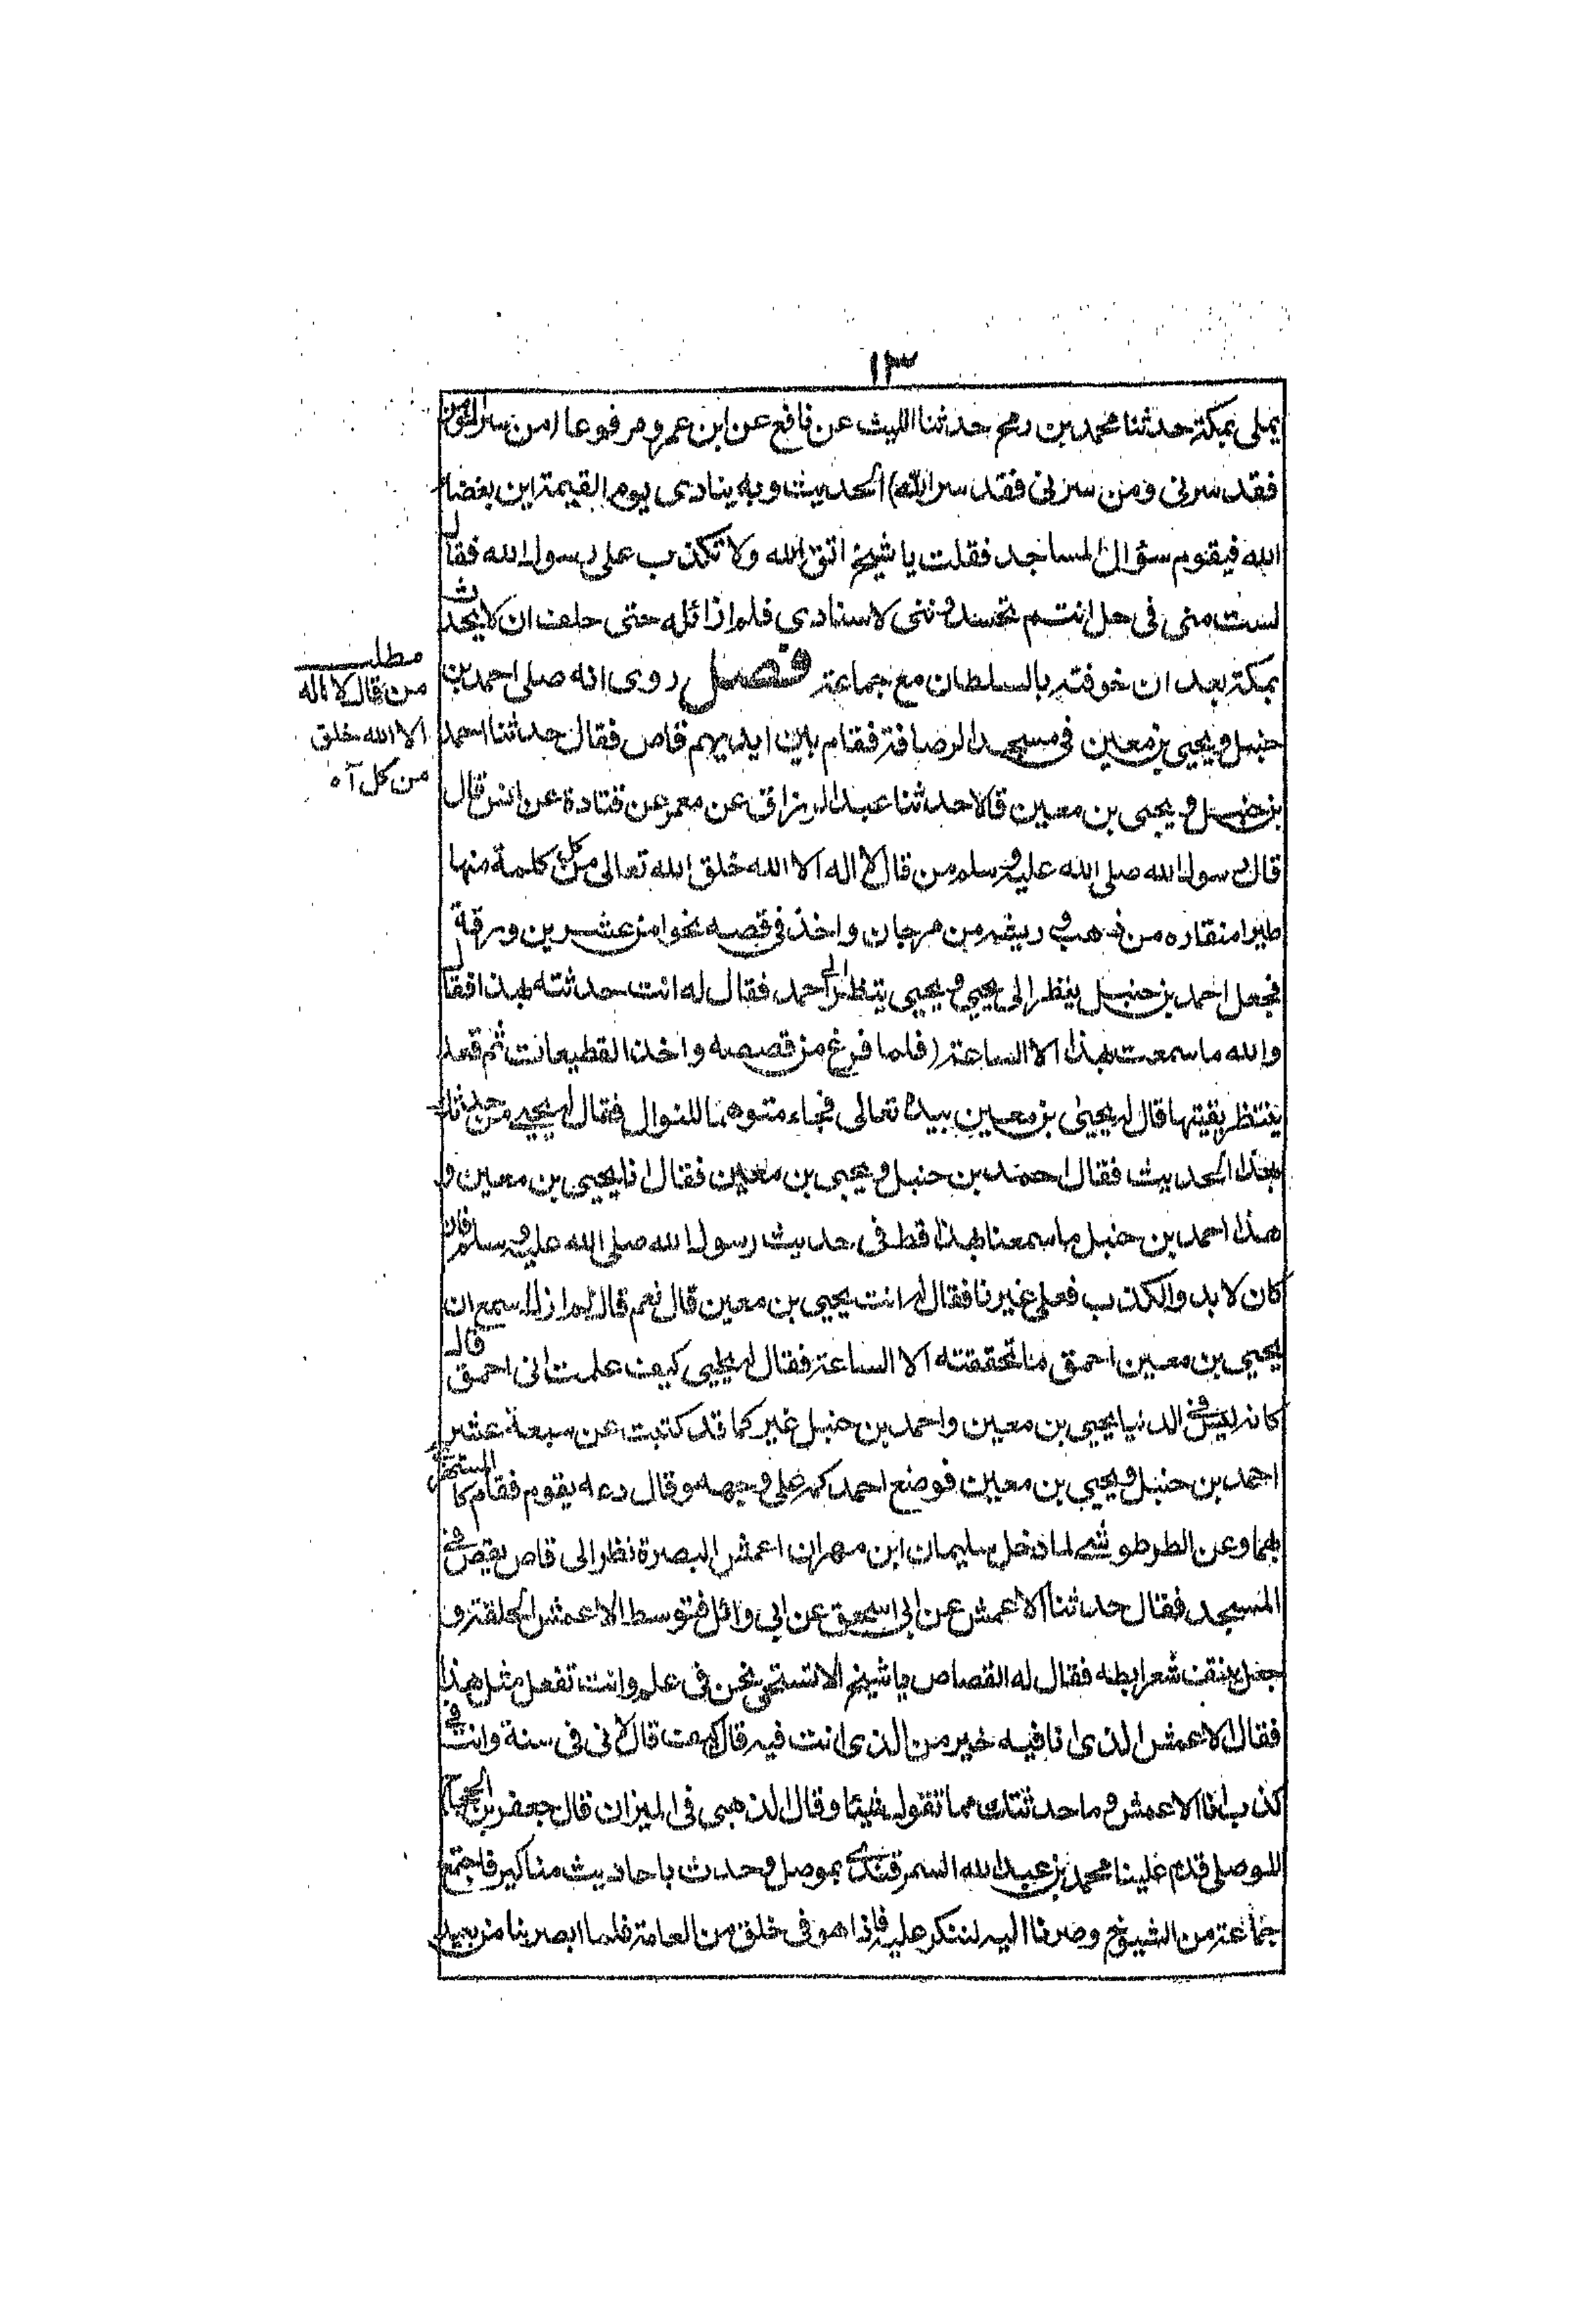 ١٣
يملى بمكة حدثنا محمد بن رمح حدثنا الليث عن نافع عن ابن عمر و مرفوعا (من سر المؤمن
فقد سرنى ومن سرنى فقد سر الله) الحديث وبه ينادى يوم القيمة اين بغضاء
الله فيقوم سؤال المساجد فقلت يا شيخ اتق الله ولا تكذب على رسول الله فقال
لست منى فى حل انتم تحسدوننى لاسنادى فلم ازائله حتى حلف ان لا يحدث
بمكة بعد ان خوفته بالسلطان مع جماعة فصل روى انه صلى احمد بن
حنبل و يحيى بن معين فى مسجد الرصافة فقام بين ايديهم قاص فقال حدثنا احمد
بن حنبل و يحيى بن معين قالا حدثنا عبد الرزاق عن معمر عن قتادة عن انس قال
قال رسول الله صلى الله عليه وسلم من قال لا اله الا الله خلق الله تعالى من كل كلمة منها
طيرا منقاره من ذهب و ريشه من مرجان واخذ فى قصه نحوا من عشرين ورقة
فجعل احمد بن حنبل ينظر الى يحيى و يحيى ينظر الى احمد فقال له انت حدثته بهذا فقال
والله ما سمعت بهذا الا الساعة (فلما فرغ من قصصه واخذ القطيعات ثم قعد
ينتظر بقيتها قال له يحيى بن معين بيده تعالى فجاء متوهما للنوال فقال له يحيى من حدثك
بهذا الحديث فقال احمد بن حنبل و يحيى بن معين فقال انا يحيى بن معين و
هذا احمد بن حنبل ما سمعنا بهذا قط فى حديث رسول الله صلى الله عليه وسلم فان
كان لا بد والكذب فعلى غيرنا فقال له انت يحيى بن معين قال نعم قال لم ازل اسمع ان
يحيى بن معين احمق ما تحققته الا الساعة فقال له يحيى كيف علمت انى احمق قال
كانه ليس فى الدنيا يحيى بن معين واحمد بن حنبل غيركما قد كتبت عن سبعة عشر
احمد بن حنبل و يحيى بن معين فوضع احمد كمه على وجهه وقال دعه يقوم فقام كالمستهزئ
بهما وعن الطرطوشى لما دخل سليمان ابن مهران اعمش البصرة نظر الى قاص يقص فى
المسجد فقال حدثنا الاعمش عن ابى اسحق عن ابى وائل فتوسط الاعمش الحلقة و
جعل ينتف شعر ابطه فقال له القصاص يا شيخ الا تستحى نحن فى علم وانت تفعل مثل هذا
فقال الاعمش الذى انا فيه خير من الذى انت فيه قال كيف قال لانى فى سنة وانت فى
كذب انا الاعمش و ما حدثتك مما تقول شيئا وقال الذهبى فى الميزان قال جعفر بن الحجاج
الموصلى قدم علينا محمد بن عبد الله السمرقندى بموصل و حدث باحاديث مناكير فاجتمع
جماعة من الشيوخ وصرنا اليه لننكر عليه فاذا هو فى خلق من العامة فلما ابصرنا من بعيد
مطلب
من قال لا اله
الا الله خلق
من كل آه